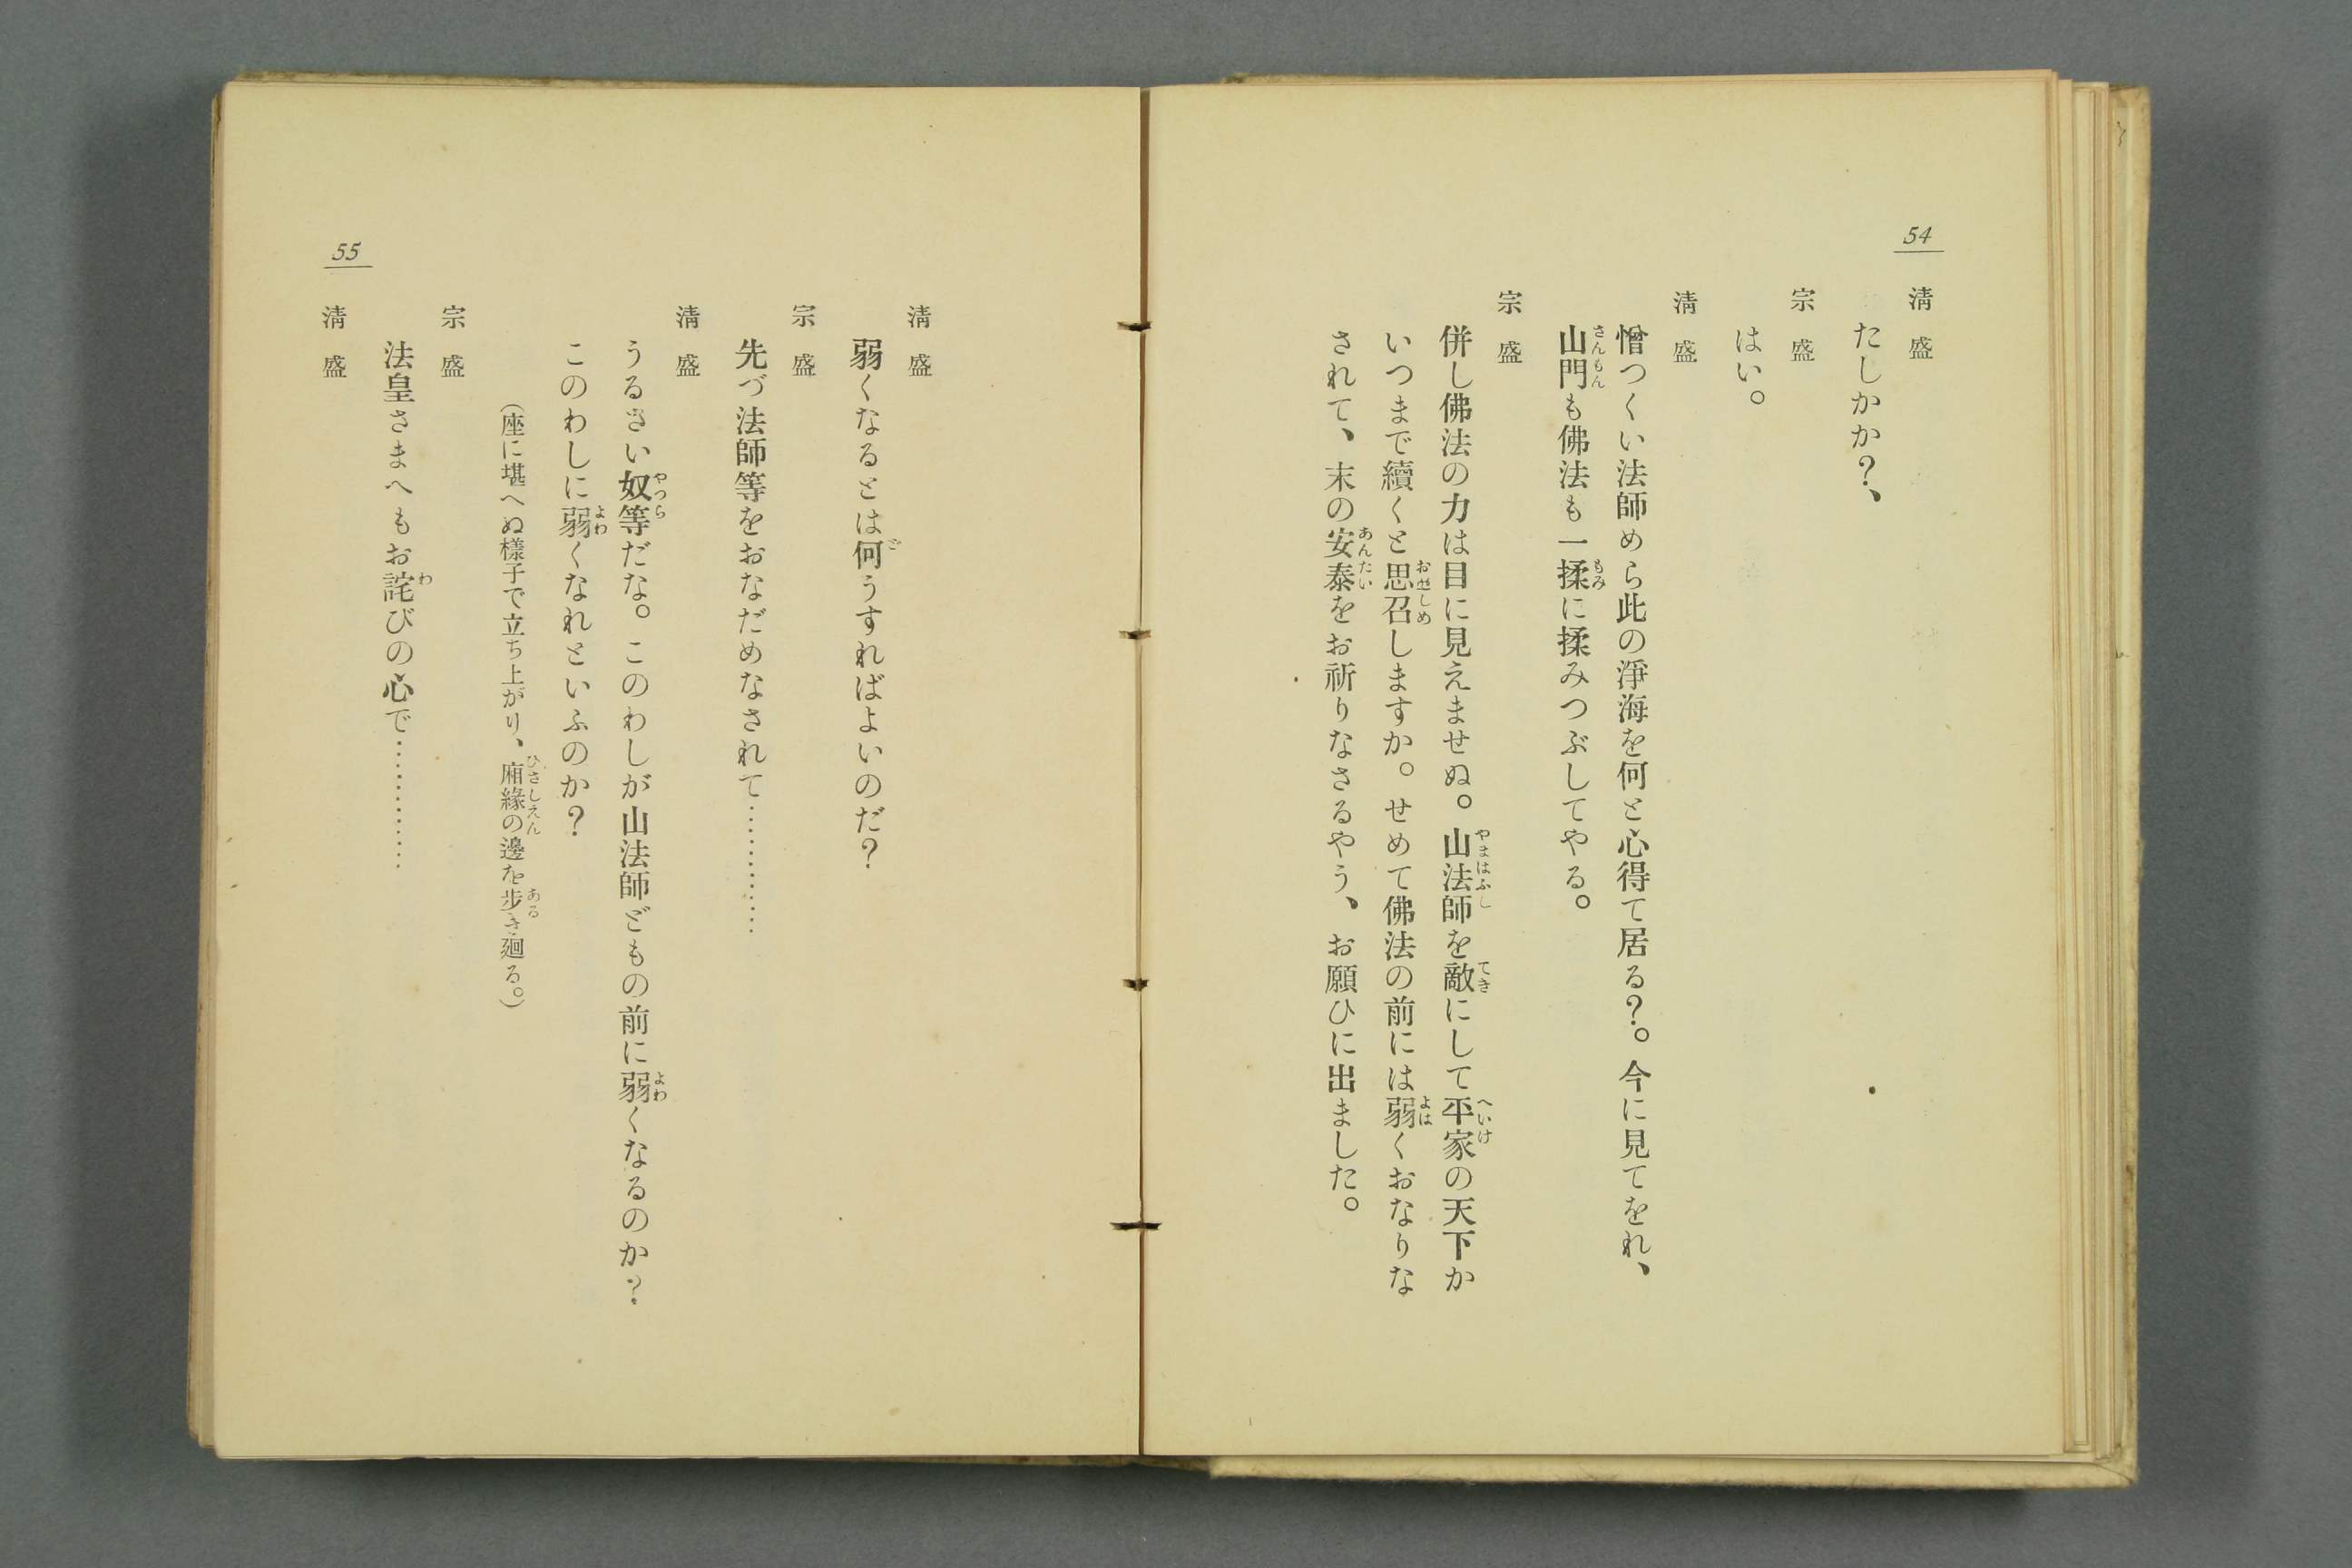 54
淸盛
たしかか？、
宗盛
はい。
淸盛
憎つくい法師めら此の淨海を何と心得て居る？。今に見てをれ、
山門も佛法も一揉に揉みつぶしてやる。
宗盛
併し佛法の力は目に見えませぬ。山法師を敵にして平家の天下か
いつまで續くと思召しますか。せめて佛法の前には弱くおなりな
されて、末の安泰をお祈りなさるやう、お願ひに出ました。
55
淸盛
弱くなるとは何うすればよいのだ？
宗盛
先づ法師等をおなだめなされて…………
淸盛
うるさい奴等だな。このわしが山法師どもの前に弱くなるのか？
このわしに弱くなれといふのか？
（座に堪へぬ樣子で立ち上がり、廂緣の邊を步き廻る。）
宗盛
法皇さまへもお詫びの心で…………
淸盛